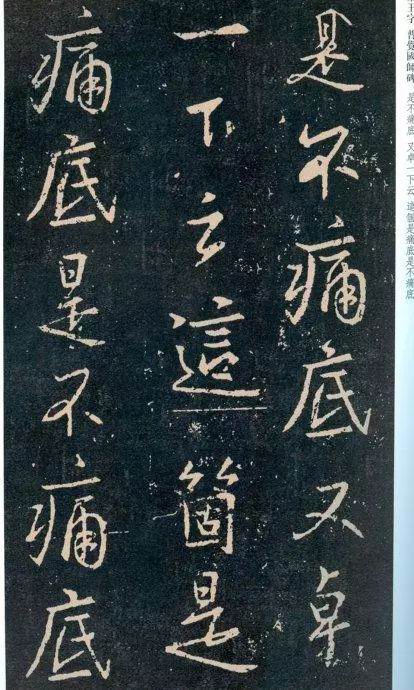 王字 普覺國師碑 是不痛底 又卓一下云 這個是痛底是不痛底
是不痛底又卓
一下云這箇是
痛底是不痛底